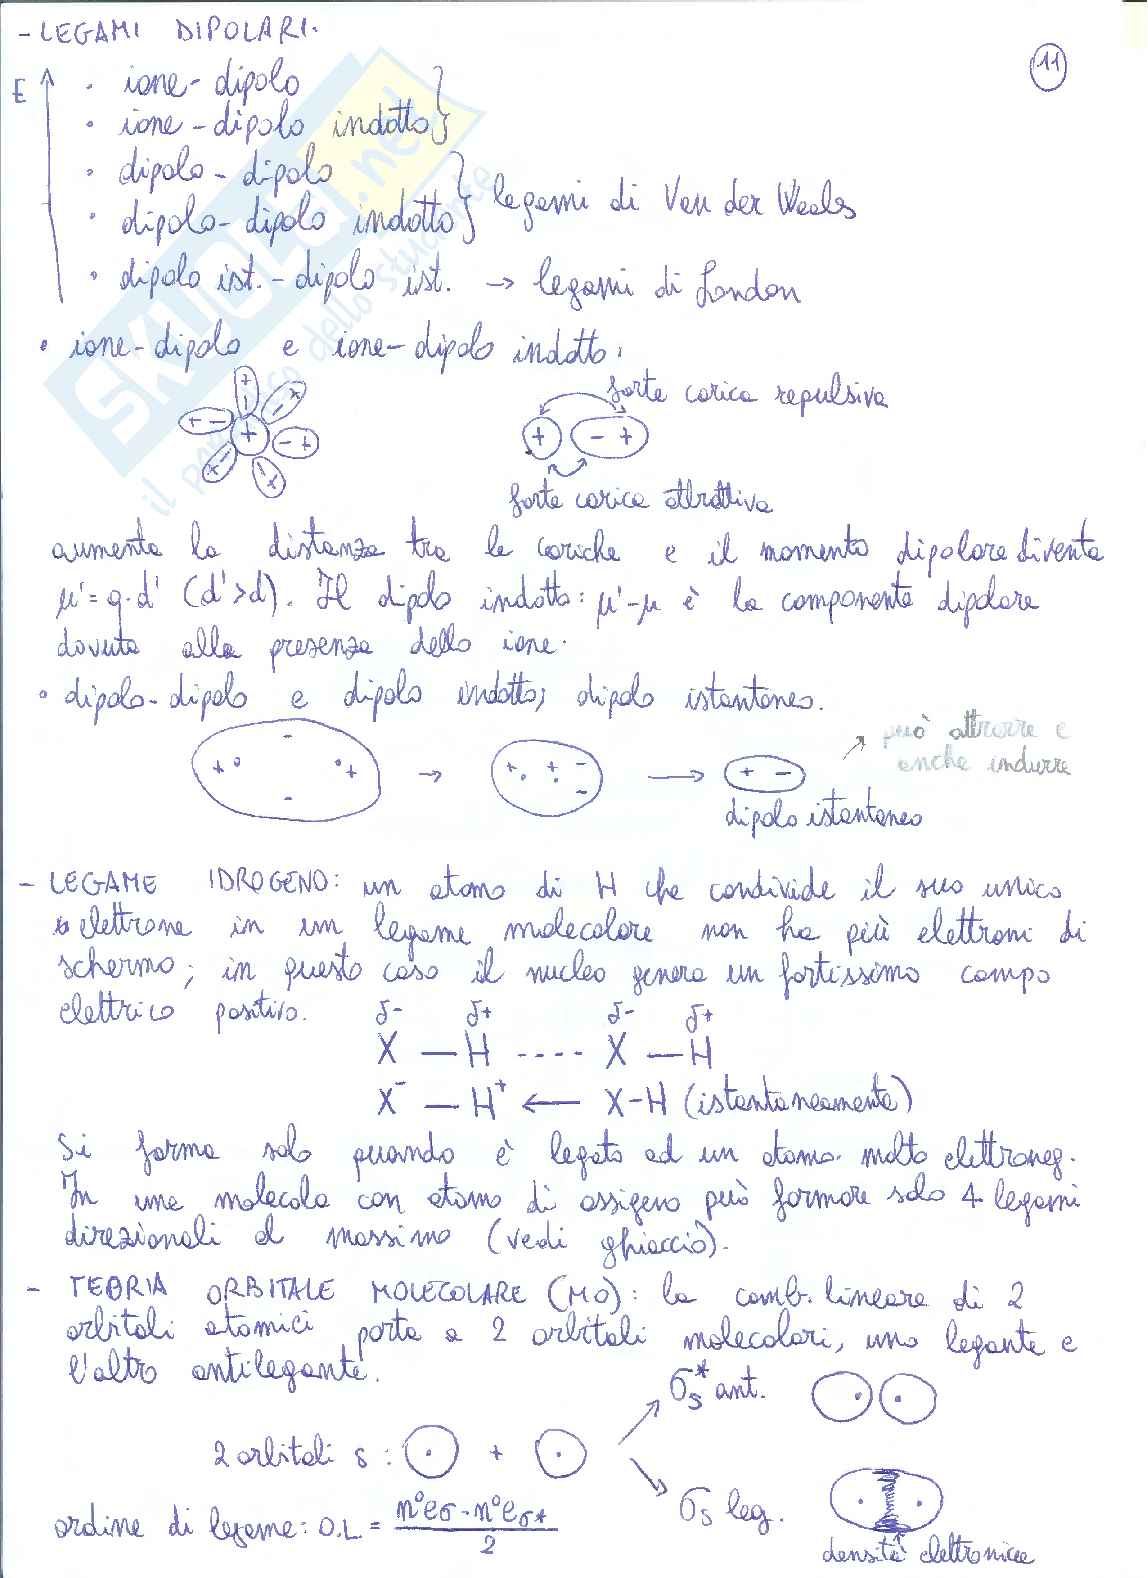 - LEGAMI DIPOLARI.
11
E
• ione-dipolo
• ione-dipolo indotto
• dipolo-dipolo
• dipolo-dipolo indotto } legami di Van der Waals
• dipolo ist.-dipolo ist. → legami di London
• ione-dipolo e ione-dipolo indotto:
forte carica repulsiva
+ + - + - + - + - + - + -
+ - +
forte carica attrattiva
aumenta la distanza tra le cariche e il momento dipolare diventa
μ'=q·d' (d'>d). Il dipolo indotto: μ'-μ è la componente dipolare
dovuta alla presenza dello ione.
• dipolo-dipolo e dipolo indotto; dipolo istantaneo.
può attrarre e
anche indurre
+ - - + → + + - - → + -
dipolo istantaneo
- LEGAME IDROGENO: un atomo di H che condivide il suo unico
elettrone in un legame molecolare non ha più elettroni di
schermo; in questo caso il nucleo genera un fortissimo campo
elettrico positivo.
δ- δ+ δ- δ+
X — H ---- X — H
X⁻ — H⁺ ← X-H (istantaneamente)
Si forma solo quando è legato ad un atomo molto elettroneg.
In una molecola con atomo di ossigeno può formare solo 4 legami
direzionali al massimo (vedi ghiaccio).
- TEORIA ORBITALE MOLECOLARE (MO): la comb. lineare di 2
orbitali atomici porta a 2 orbitali molecolari, uno legante e
l'altro antilegante.
σs* ant.
2 orbitali s: +
σs leg.
ordine di legame: O.L = n°eσ - n°eσ* / 2
densità elettronica
SKUOLA.net
il paradiso dello studente